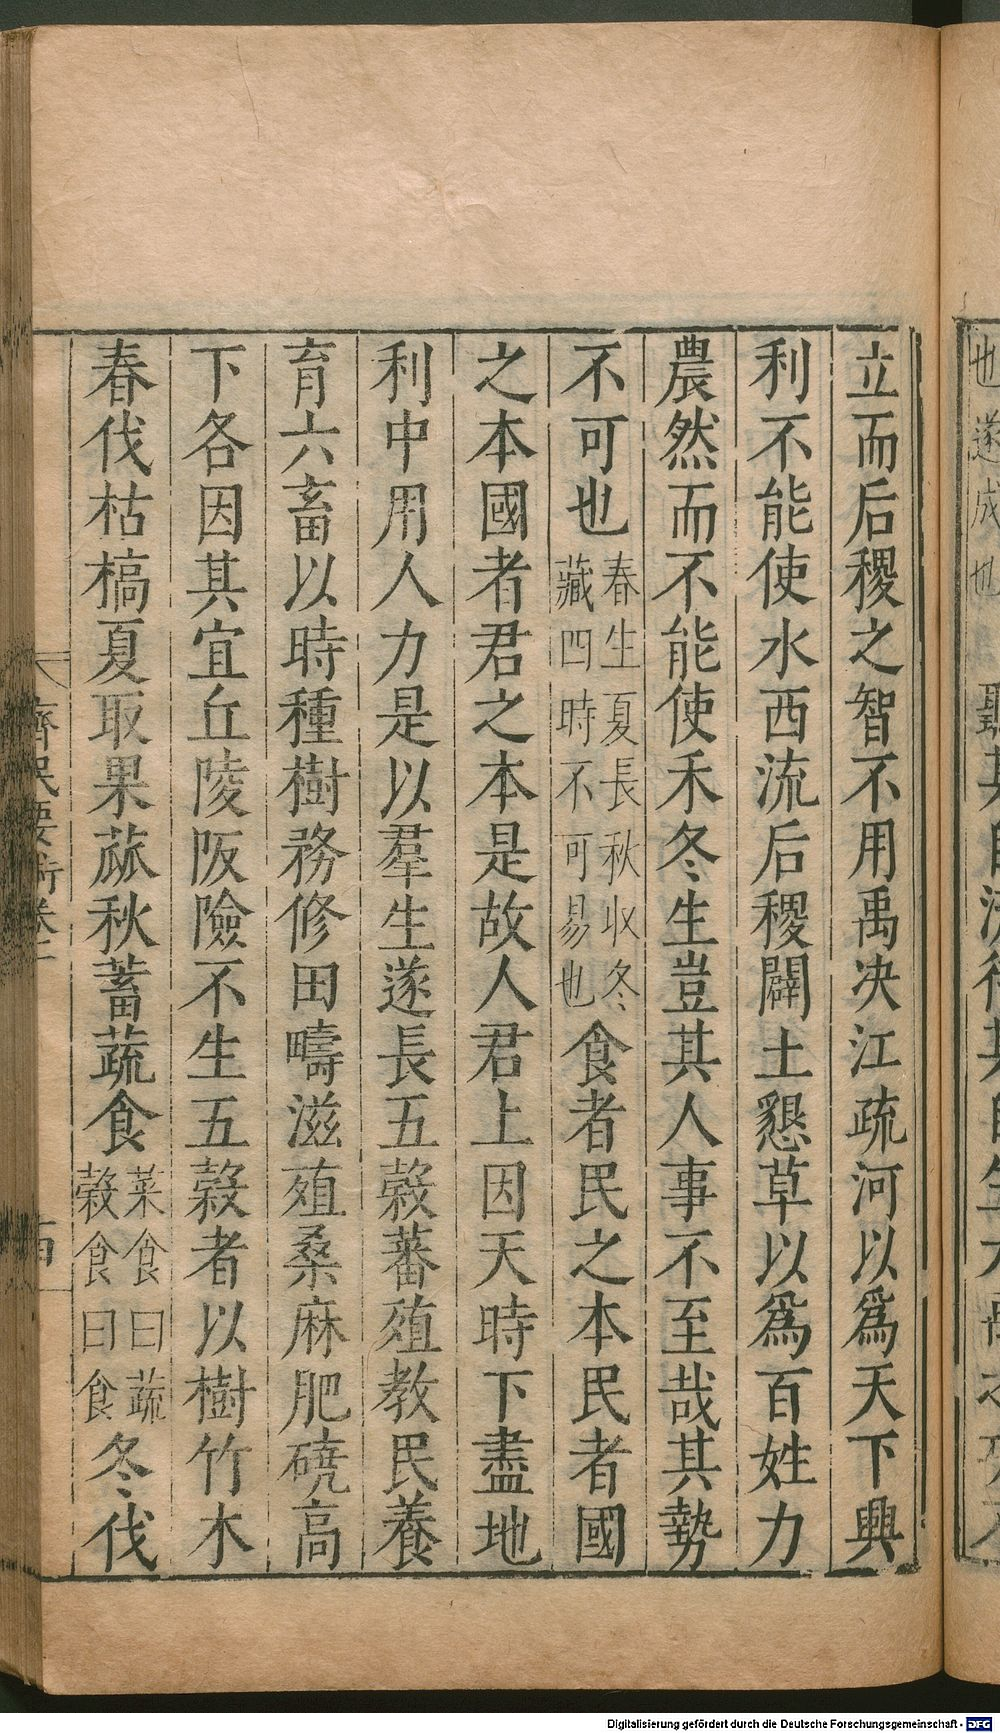 立而后稷之智不用禹決江疏河以爲天下興
利不能使水西流后稷闢土懇草以爲百姓力
農然而不能使禾冬生豈其人事不至哉其勢
不可也春生夏長秋收冬藏四時不可易也食者民之本民者國
之本國者君之本是故人君上因天時下盡地
利中用人力是以羣生遂長五穀蕃殖教民養
育六畜以時種樹務修田疇滋殖桑麻肥磽高
下各因其宜丘陵阪險不生五穀者以樹竹木
春伐枯槁夏取果蓏秋蓄蔬食菜食曰蔬穀食曰食冬伐
齊民要術卷
Digitalisierung gefördert durch die Deutsche Forschungsgemeinschaft - DFG